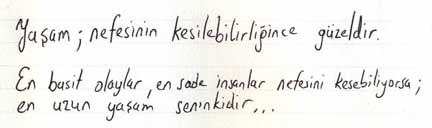 Yaşam; nefesinin kesilebilirliğince güzeldir.
En basit olaylar, en sade insanlar nefesini kesebiliyorsa;
en uzun yaşam seninkidir...